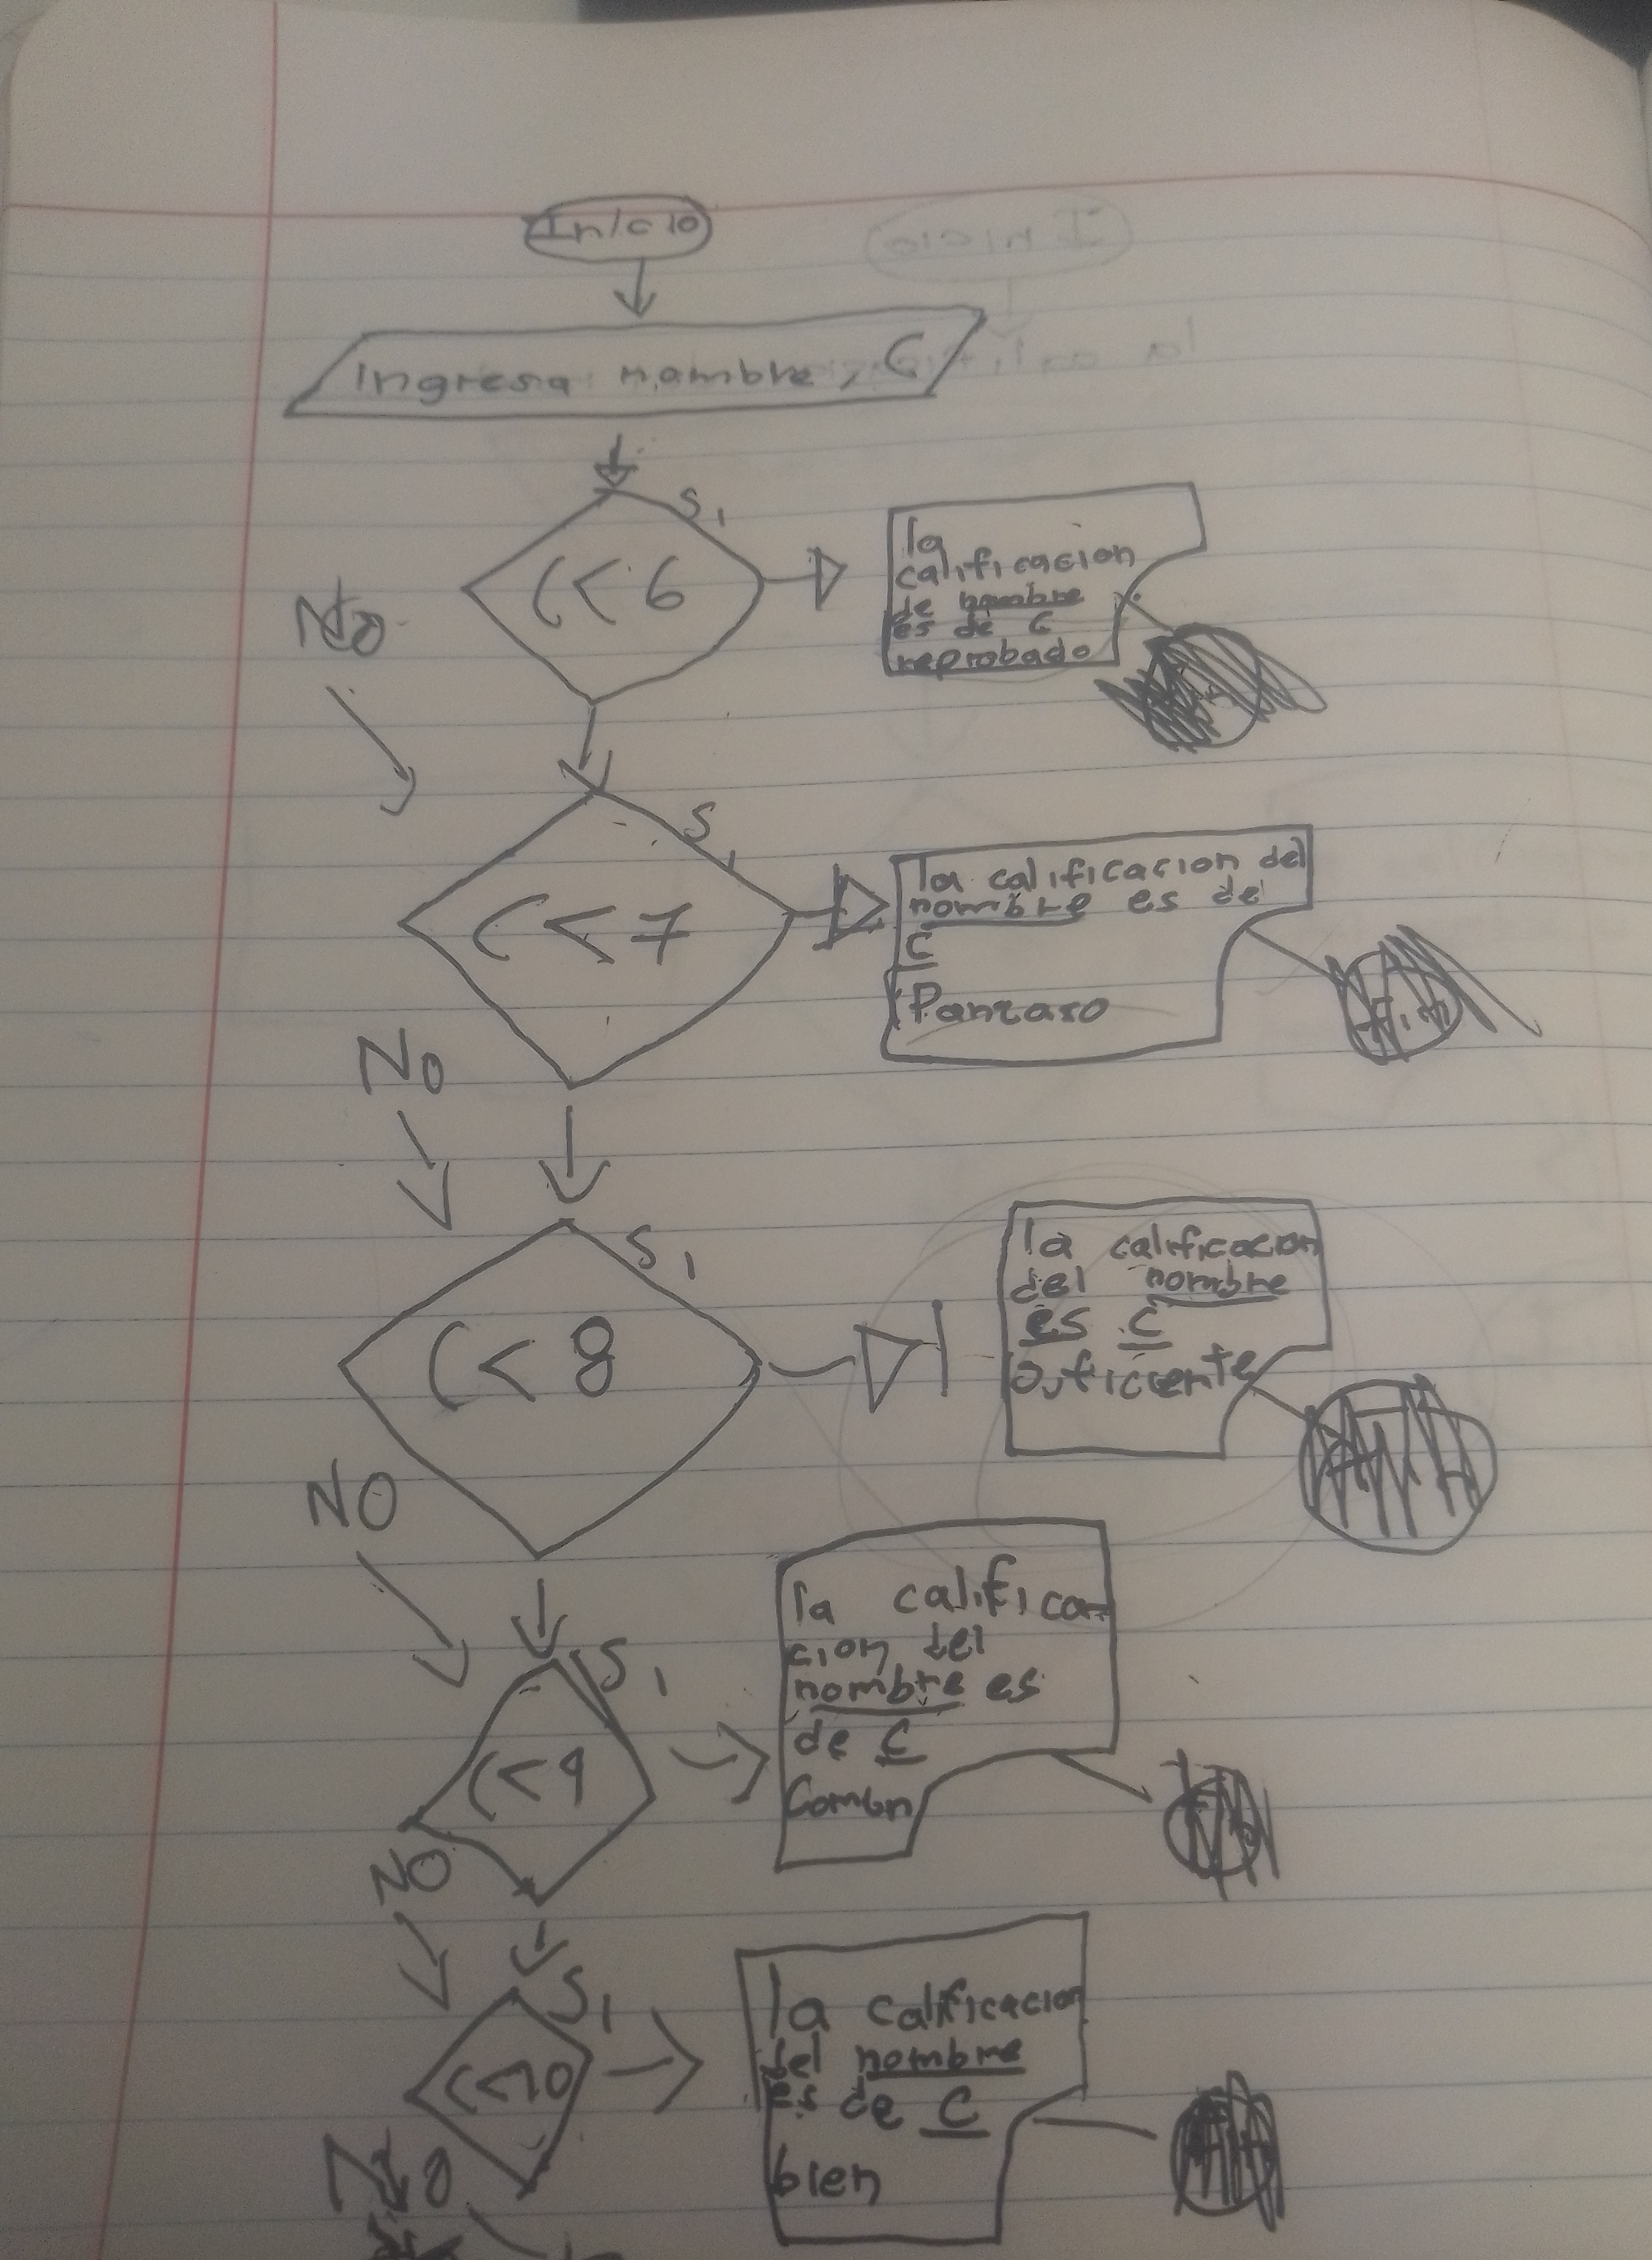 Inicio
Ingresa nombre, C
Si
C<6
la
calificacion
de nombre
es de C
reprobado
No
Si
C<7
la calificacion del
nombre es de
C
Panzaso
No
Si
C<8
la calificacion
del nombre
es C
suficiente
NO
Si
C<9
la califica
cion del
nombre es
de C
Comun
NO
Si
C<10
la calificacion
del nombre
es de C
bien
No